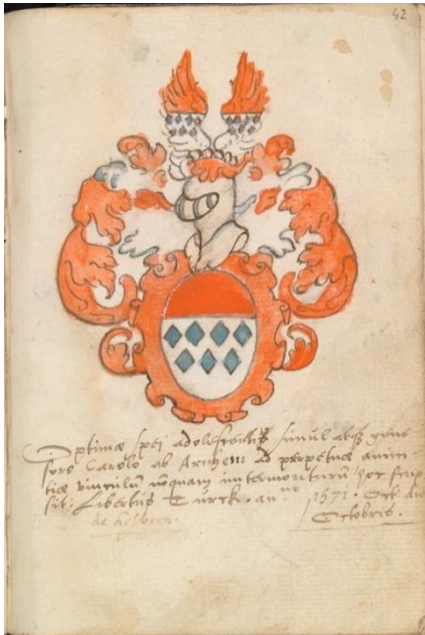 42
Optimæ spei adolescentis simul atqꝫ gene
roso Carolo ab Arnhem ad perpetuæ amici
tiæ vinculũ nũquam intermoriturũ hoc scrip
sit: Libertus Turck. anno 1571. Oct. die
Octobris.
de